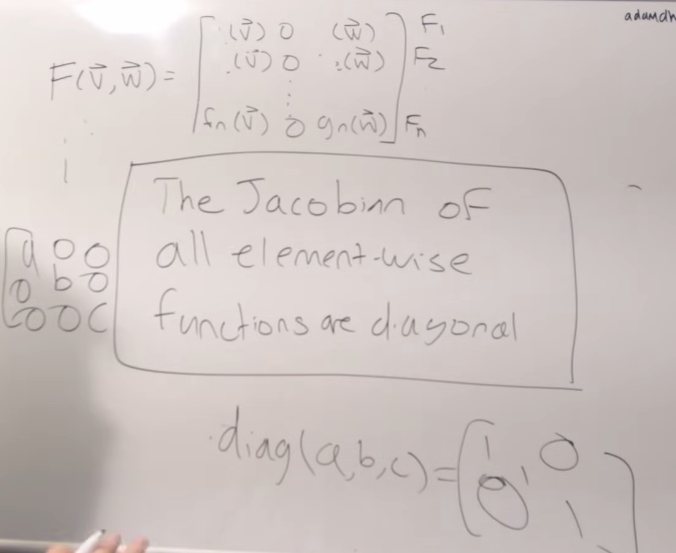 adamdh
(v⃗) 0 (w⃗) F₁
F(v⃗,w⃗) = (v⃗) 0 (w⃗) F₂
⋮
fn(v⃗) 0 gn(w⃗) Fn
The Jacobian of
all element-wise
functions are diagonal
a 0 0
0 b 0
0 0 c
diag(a,b,c) = 1 0
0 1
1